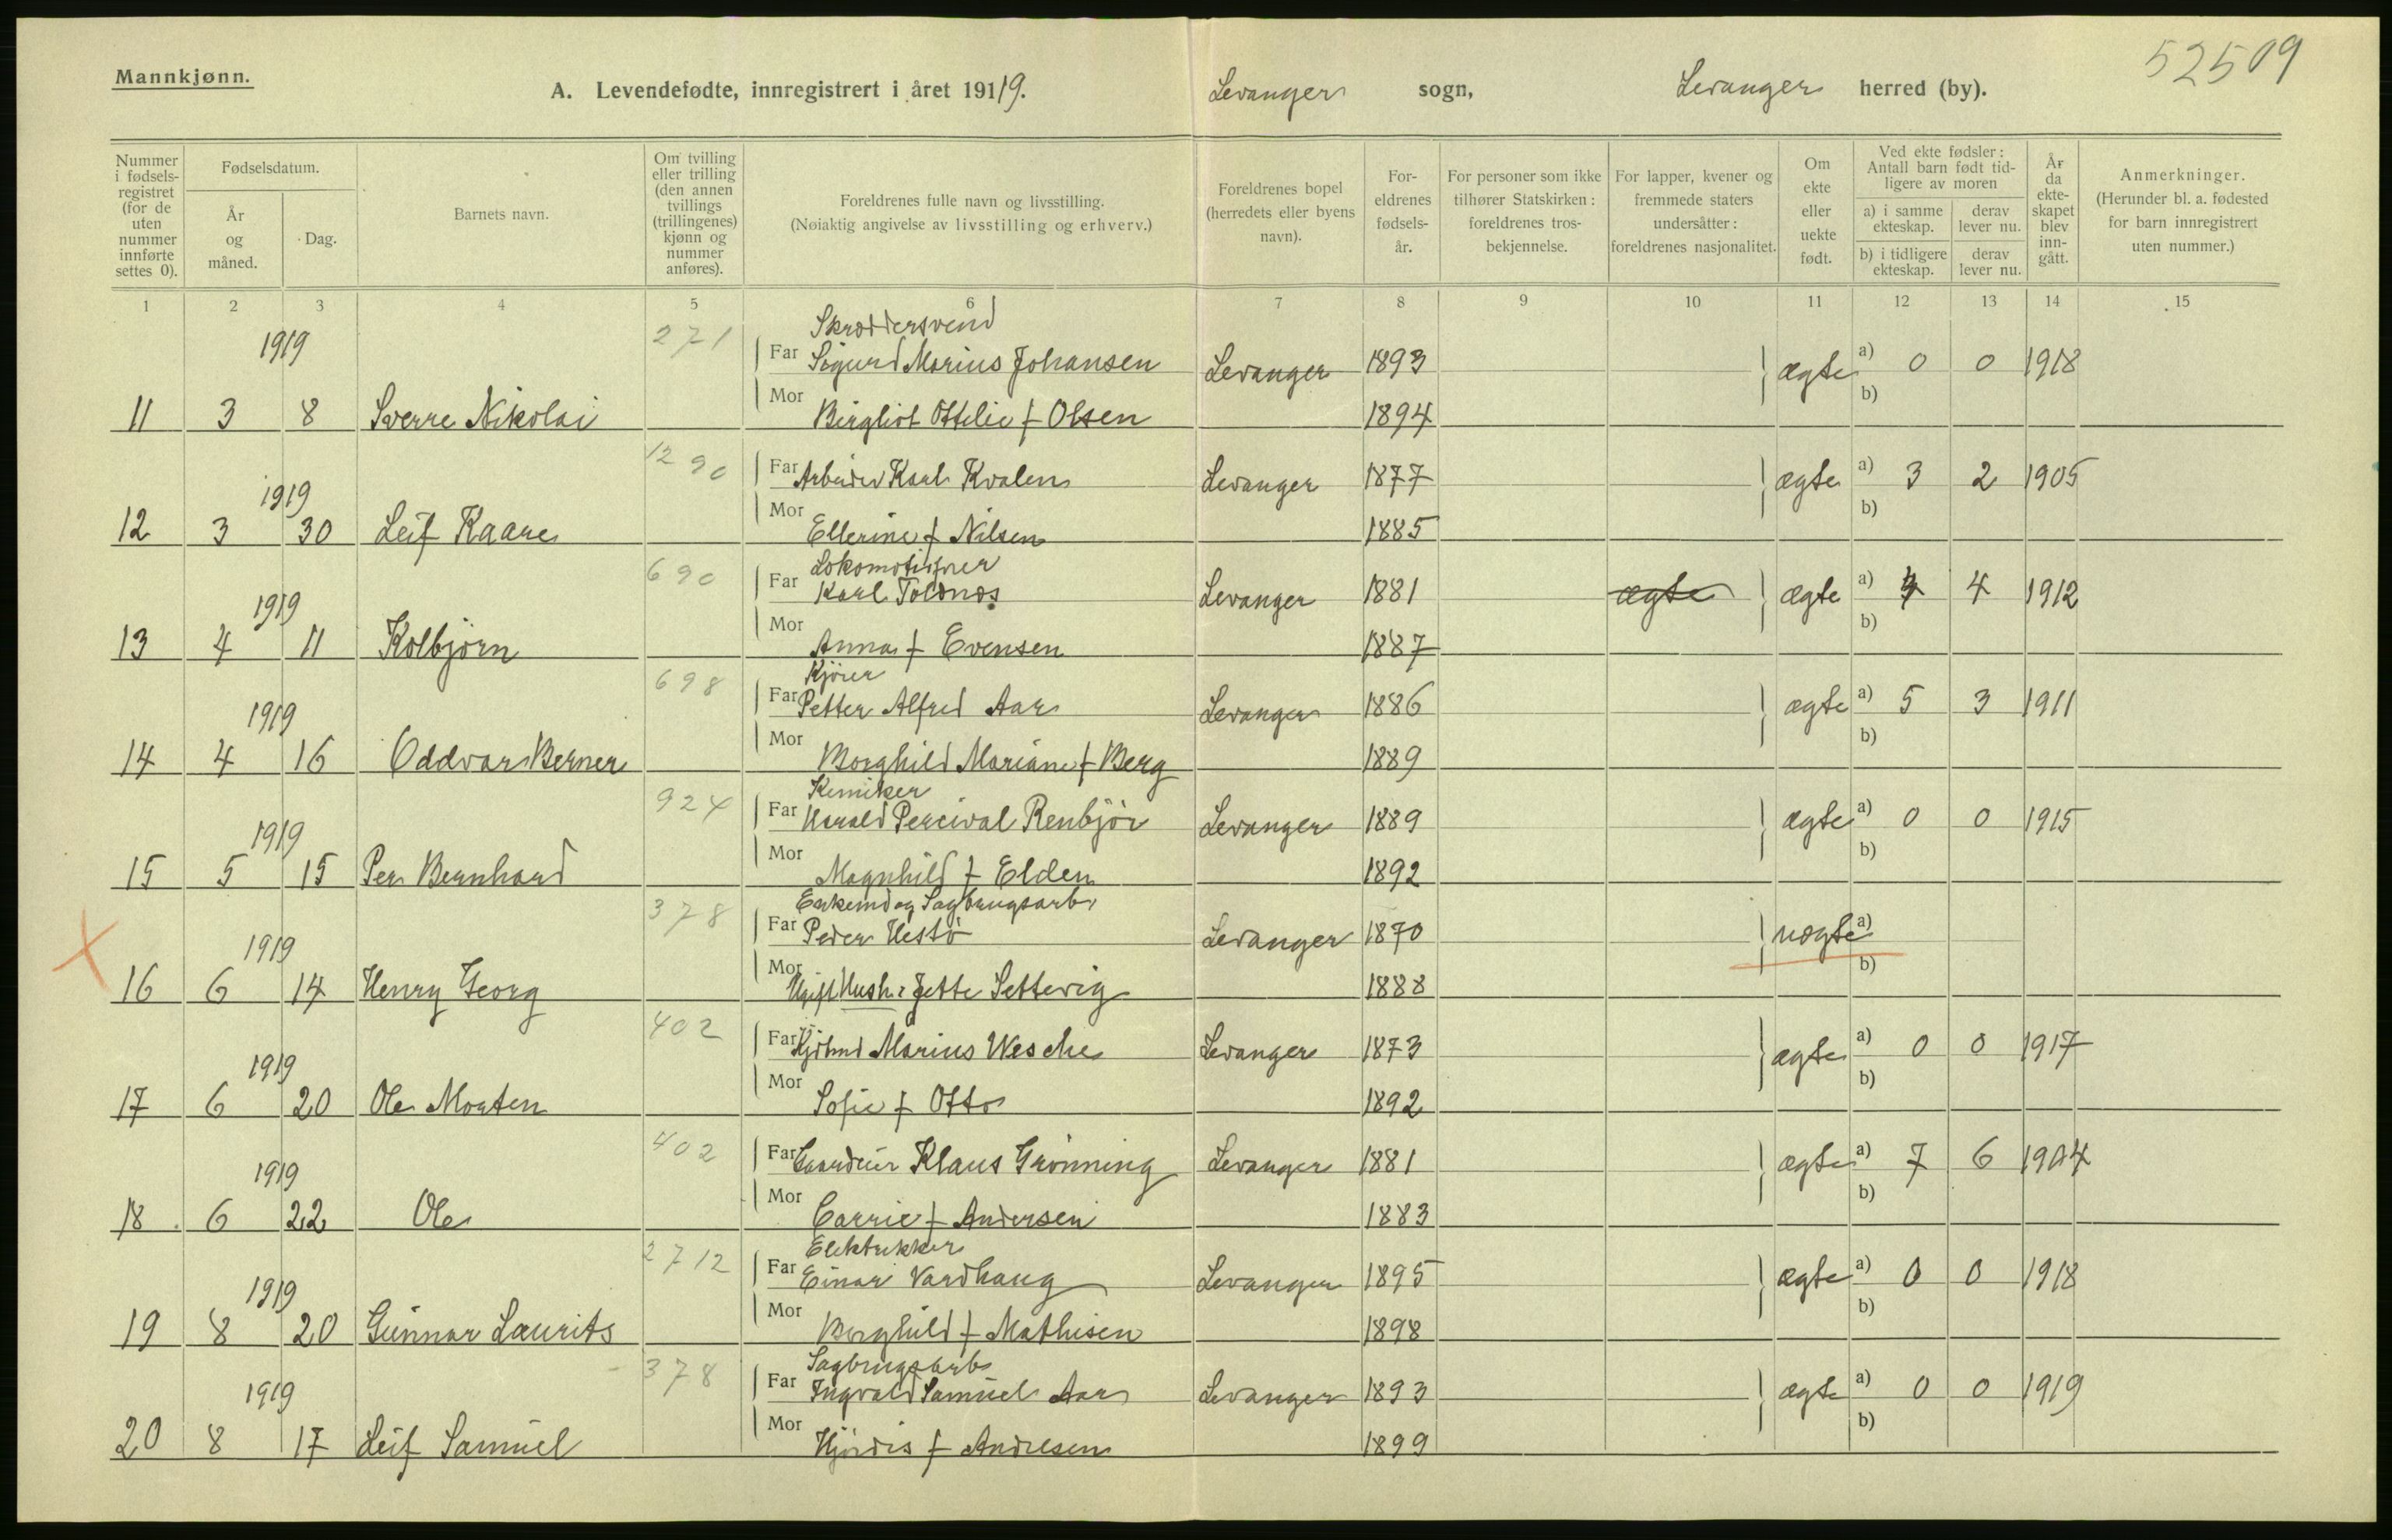 52509
Mannkjønn.
A. Levendefødte, innregistrert i året 1919. Levanger sogn, Levanger herred (by).
Nummer i fødsels-registret (for de uten nummer innførte settes 0).
Fødselsdatum.
År og måned.
Dag.
Barnets navn.
Om tvilling eller trilling (den annen tvillings (trillingenes) kjønn og nummer anføres).
Foreldrenes fulle navn og livsstilling. (Nøiaktig angivelse av livsstilling og erhverv.)
Foreldrenes bopel (herredets eller byens navn).
For-eldrenes fødsels-år.
For personer som ikke tilhører Statskirken: foreldrenes tros-bekjennelse.
For lapper, kvener og fremmede staters undersåtter: foreldrenes nasjonalitet.
Om ekte eller uekte født.
Ved ekte fødsler: Antall barn født tid-ligere av moren
a) i samme ekteskap.
derav lever nu.
b) i tidligere ekteskap.
derav lever nu.
År da ekte-skapet blev inn-gått.
Anmerkninger. (Herunder bl. a. fødested for barn innregistrert uten nummer.)
1 2 3 4 5 6 7 8 9 10 11 12 13 14 15
Skræddersvend
1919 271 Far Sigurd Marius Johansen Levanger 1893 ægte a) 0 0 1918
b)
11 3 8 Sverre Nikolai Mor Bergliot Ottilie f Olsen 1894
1290 Far Arbeider Karl Kvalen Levanger 1877 ægte a) 3 2 1905
1919 b)
12 3 30 Leif Kaare Mor Ellerine f Nilsen 1885
Lokomotivfyrer
690 Far Karl Toldnæs Levanger 1881 ægte ægte a) 4 4 1912
1919 b)
13 4 11 Kolbjørn Mor Anna f Evensen 1887
Kjører
698 Far Petter Alfred Aar Levanger 1886 ægte a) 5 3 1911
1919 b)
14 4 16 Oddvar Berner Mor Borghild Mariane f Berg 1889
Kemiker
924 Far Harald Percival Renbjør Levanger 1889 ægte a) 0 0 1915
1919 b)
15 5 15 Per Bernhard Mor Magnhild f Elden 1892
Enkemd og Sagbrugsarb
378 Far Peder Hestø Levanger 1870 uægte a)
1919 b)
16 6 14 Henry Georg Mor Ugift Hush. Jette Settevig 1888
402 Far Kjøbmd Marius Wesche Levanger 1873 ægte a) 0 0 1917
1919 b)
17 6 20 Ole Morten Mor Sofie f Otto 1892
402 Far Klaus Grønning Levanger 1881 ægte a) 7 6 1904
1919 b)
18 6 22 Ole Mor Carrie f Andersen 1883
Elektrikker
2712 Far Einar Vardhaug Levanger 1895 ægte a) 0 0 1918
1919 b)
19 8 20 Gunnar Laurits Mor Borghild f Mathisen 1898
Sagbrugsarb
378 Far Ingvald Samuel Aar Levanger 1893 ægte a) 0 0 1919
1919 b)
20 8 17 Leif Samuel Mor Hjørdis f Andresen 1899